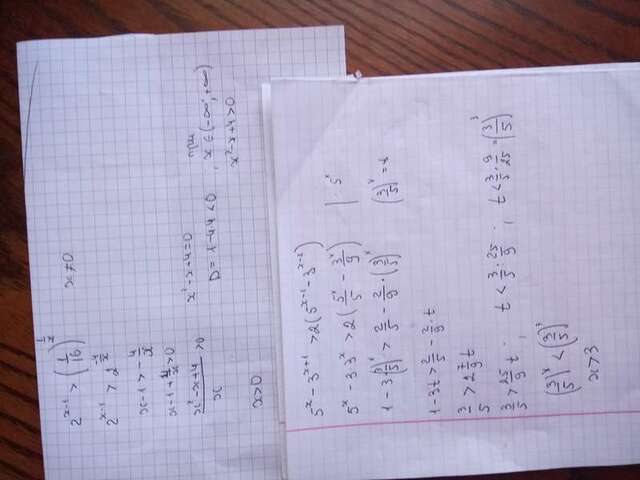 2^(x-1) > (1/16)^(1/x)    x≠0
2^(x-1) > 2^(-4/x)
x-1 > -4/x
x-1+4/x>0
(x²-x+4)/x >0    x²-x+4=0
D=1-4·4<0, при x∈(-∞;+∞)
x²-x+4>0
x>0
5^x-3^(x+1) >2(5^(x-1)-3^(x-2))
5^x-3·3^x >2(5^x/5 - 3^x/9) | : 5^x
1-3(3/5)^x > 2/5 - 2/9·(3/5)^x    (3/5)^x = t
1-3t > 2/5 - 2/9·t
3/5 > 2 7/9 t
3/5 > 25/9 t; t < 3/5 : 25/9; t < 3/5 · 9/25 = (3/5)^3
(3/5)^x < (3/5)^3
x>3